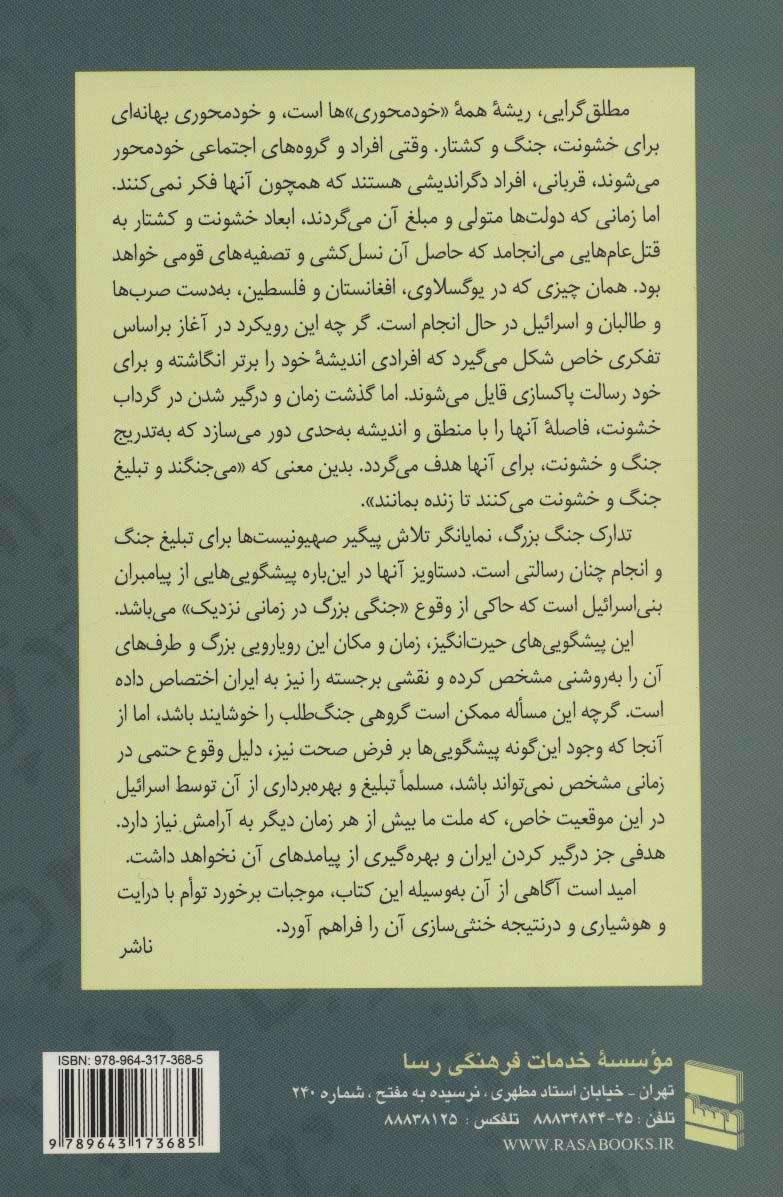 مطلق‌گرایی، ریشهٔ همهٔ «خودمحوری»ها است، و خودمحوری بهانه‌ای
برای خشونت، جنگ و کشتار. وقتی افراد و گروه‌های اجتماعی خودمحور
می‌شوند، قربانی، افراد دگراندیشی هستند که همچون آنها فکر نمی‌کنند.
اما زمانی که دولت‌ها متولی و مبلغ آن می‌گردند، ابعاد خشونت و کشتار به
قتل‌عام‌هایی می‌انجامد که حاصل آن نسل‌کشی و تصفیه‌های قومی خواهد
بود. همان چیزی که در یوگسلاوی، افغانستان و فلسطین، به‌دست صرب‌ها
و طالبان و اسرائیل در حال انجام است. گر چه این رویکرد در آغاز براساس
تفکری خاص شکل می‌گیرد که افرادی اندیشهٔ خود را برتر انگاشته و برای
خود رسالت پاکسازی قایل می‌شوند. اما گذشت زمان و درگیر شدن در گرداب
خشونت، فاصلهٔ آنها را با منطق و اندیشه به‌حدی دور می‌سازد که به‌تدریج
جنگ و خشونت، برای آنها هدف می‌گردد. بدین معنی که «می‌جنگند و تبلیغ
جنگ و خشونت می‌کنند تا زنده بمانند».
تدارک جنگ بزرگ، نمایانگر تلاش پیگیر صهیونیست‌ها برای تبلیغ جنگ
و انجام چنان رسالتی است. دستاویز آنها در این‌باره پیشگویی‌هایی از پیامبران
بنی‌اسرائیل است که حاکی از وقوع «جنگی بزرگ در زمانی نزدیک» می‌باشد.
این پیشگویی‌های حیرت‌انگیز، زمان و مکان این رویارویی بزرگ و طرف‌های
آن را به‌روشنی مشخص کرده و نقشی برجسته را نیز به ایران اختصاص داده
است. گرچه این مسأله ممکن است گروهی جنگ‌طلب را خوشایند باشد، اما از
آنجا که وجود این‌گونه پیشگویی‌ها بر فرض صحت نیز، دلیل وقوع حتمی در
زمانی مشخص نمی‌تواند باشد، مسلماً تبلیغ و بهره‌برداری از آن توسط اسرائیل
در این موقعیت خاص، که ملت ما بیش از هر زمان دیگر به آرامش نیاز دارد.
هدفی جز درگیر کردن ایران و بهره‌گیری از پیامدهای آن نخواهد داشت.
امید است آگاهی از آن به‌وسیله این کتاب، موجبات برخورد توأم با درایت
و هوشیاری و درنتیجه خنثی‌سازی آن را فراهم آورد.
ناشر
مؤسسهٔ خدمات فرهنگی رسا
تهران - خیابان استاد مطهری، نرسیده به مفتح، شماره ۲۴۰
تلفن : ۴۵-۸۸۸۳۴۸۴۴ تلفکس : ۸۸۸۳۸۱۲۵
WWW.RASABOOKS.IR
رسا
ISBN: 978-964-317-368-5
9 789643 173685